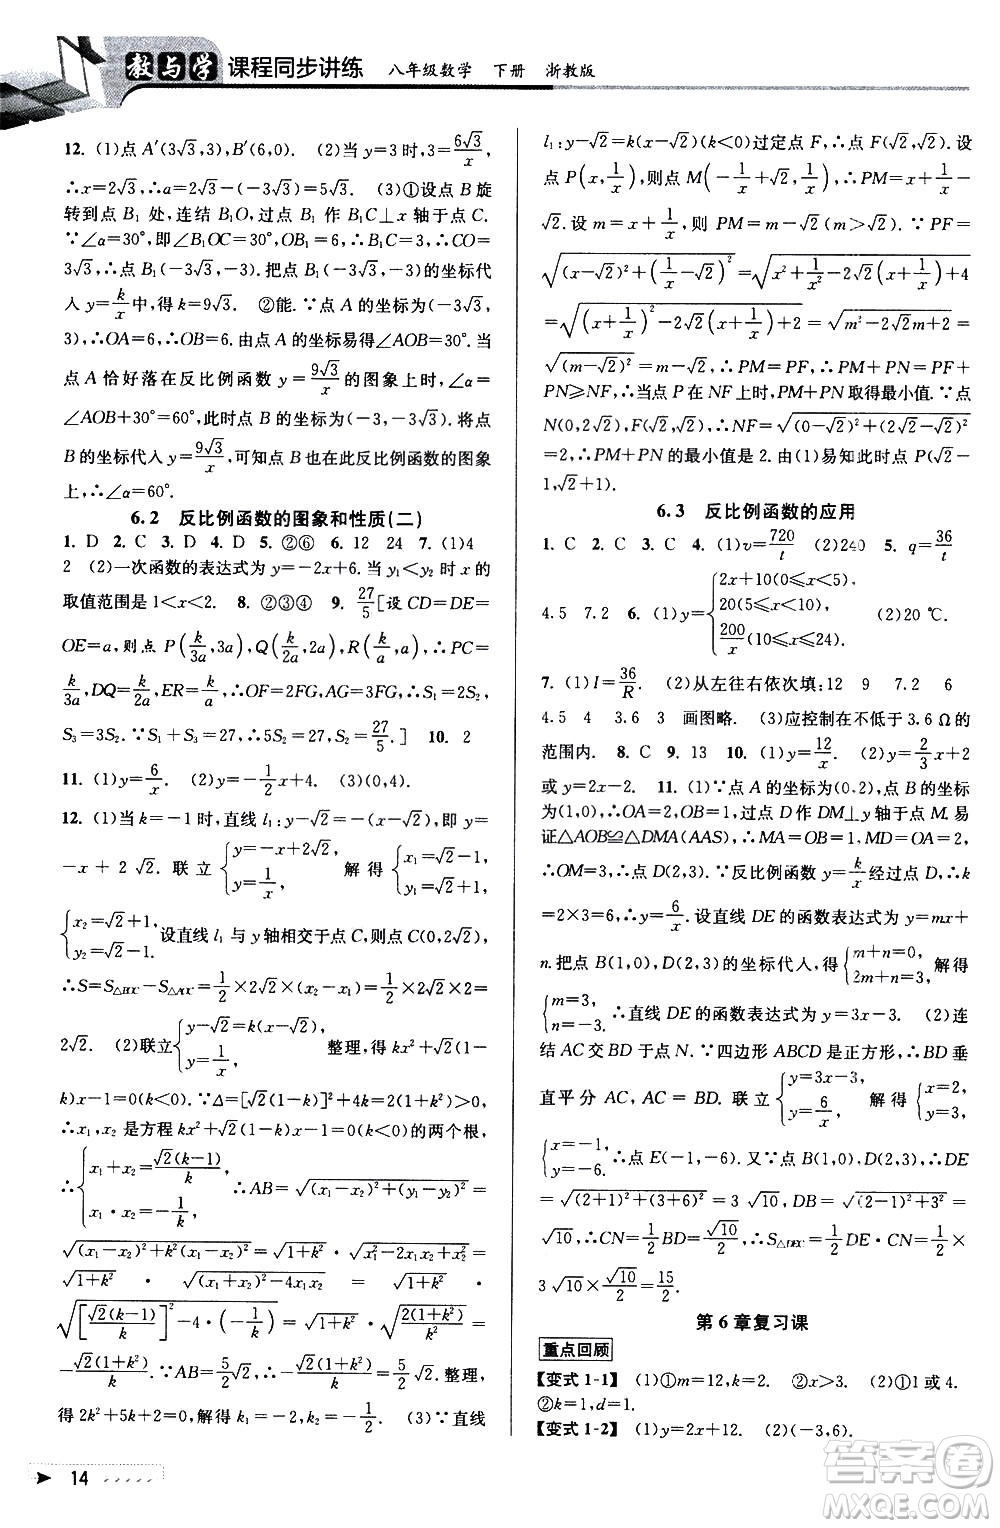 教与学 课程同步讲练 八年级数学 下册 浙教版
12. (1)点 A′(3√3,3),B′(6,0). (2)当 y=3 时,3=6√3/x,
∴x=2√3,∴a=2√3-(-3√3)=5√3. (3)①设点 B 旋
转到点 B₁ 处,连结 B₁O,过点 B₁ 作 B₁C⊥x 轴于点 C.
∵∠α=30°,即∠B₁OC=30°,OB₁=6,∴B₁C=3,∴CO=
3√3,∴点 B₁ 的坐标为(-3√3,-3).把点 B₁ 的坐标代
入 y=k/x中,得 k=9√3. ②能.∵点 A 的坐标为(-3√3,
3),∴OA=6.由点 A 的坐标易得∠AOB=30°.∵当
点 A 恰好落在反比例函数 y=9√3/x 的图象上时,∠α=
∠AOB+30°=60°,此时点 B 的坐标为(-3,-3√3).将点
B 的坐标代入 y=9√3/x,可知点 B 也在此反比例函数的图象
上,∴∠α=60°.
6.2 反比例函数的图象和性质(二)
1. D 2. C 3. D 4. D 5. ②⑥ 6. 12 24 7. (1)4
2 (2)一次函数的表达式为 y=-2x+6.当 y₁<y₂ 时 x 的
取值范围是 1<x<2. 8. ②③④ 9. 27/5[设 CD=DE=
OE=a,则点 P(k/3a,3a),Q(k/2a,2a),R(k/a,a),∴PC=
k/3a,DQ=k/2a,ER=k/a,∴OF=2FG,AG=3FG,∴S₁=2/3S₂=2S₂,
S₃=3S₂.∵S₁+S₃=27,∴5S₂=27,∴S₂=27/5.] 10. 2
11. (1)y=6/x. (2)y=-1/2x+4. (3)(0,4).
12. (1)当 k=-1 时,直线 l₁:y-√2=-(x-√2),即 y=
-x+2√2.联立{y=-x+2√2, y=1/x, 解得{x₁=√2-1, y₁=√2+1,
{x₂=√2+1, y₂=√2-1. 设直线 l₁ 与 y 轴相交于点 C,则点 C(0,2√2),
∴S=S△BOC-S△AOC=1/2×2√2·(x₂-x₁)=1/2×2√2×2=
2√2. (2)联立{y-√2=k(x-√2), y=1/x, 整理,得 kx²+√2(1-
k)x-1=0.∵Δ=[√2(1-k)]²+4k=2(1+k²)>0,
∴x₁,x₂ 是方程 kx²+√2(1-k)x-1=0(k<0)的两个根,
∴{x₁+x₂=√2(k-1)/k, x₁·x₂=-1/k, ∴AB=√((x₁-x₂)²+(y₁-y₂)²)=
√((x₁-x₂)²+k²(x₁-x₂)²)=√(1+k²)·√(x₁²-2x₁x₂+x₂²)=
√(1+k²)·√((x₁+x₂)²-4x₁x₂)=√(1+k²)·
√([√2(k-1)/k]²-4·(-1/k))=√(1+k²)·√(2(1+k²)/k²)=
-√2(1+k²)/k.∵AB=5/2√2,∴-√2(1+k²)/k=5/2√2.整理,
得 2k²+5k+2=0,解得 k₁=-1/2,k₂=-2. (3)∵直线
l₁:y-√2=k(x-√2)(k<0)过定点 F,∴点 F(√2,√2).设
点 P(x,1/x),则点 M(-1/x+√2,1/x),∴PM=x+1/x-
√2.设 m=x+1/x,则 PM=m-√2(m>√2).∵PF=
√((x-√2)²+(1/x-√2)²)=√(x²+1/x²-2√2(x+1/x)+4)
=√((x+1/x)²-2√2(x+1/x)+2)=√(m²-2√2m+2)=
√((m-√2)²)=m-√2,∴PM=PF,∴PM+PN=PF+
PN≥NF,∴当点 P 在 NF 上时,PM+PN 取得最小值.∵点
N(0,2√2),F(√2,√2),∴NF=√(√2²+(2√2-√2)²)=
2,∴PM+PN 的最小值是 2.由(1)易知点 P(√2-
1,√2+1).
6.3 反比例函数的应用
1. C 2. C 3. C 4. (1)v=720/t (2)240 5. q=36/t
4.5 7.2 6. (1)y={2x+10(0≤x≤5), 20(5≤x≤10), 200/x(10≤x≤24). (2)20 ℃.
7. (1)I=36/R. (2)从左往右依次填:12 9 7.2 6
4.5 4 3.6 3 画图略. (3)应控制在不低于 3.6 Ω 的
范围内. 8. C 9. 13 10. (1)y=12/x. (2)y=2/3x+2
或 y=2x-2. 11. (1)∵点 A 的坐标为(0,2),点 B 的坐标
为(1,0),∴OA=2,OB=1,过点 D 作 DM⊥x 轴于点 M.易
证△AOB≌△DMA(AAS),∴MA=OB=1,MD=OA=2,
∴OM=3,∴点 D(2,3).∵反比例函数 y=k/x经过点 D,∴k
=2×3=6,∴y=6/x.设直线 DE 的函数表达式为 y=mx+
n.把点 B(1,0),D(2,3)的坐标代入,得{m+n=0, 2m+n=3, 解得
{m=3, n=-3. ∴直线 DE 的函数表达式为 y=3x-3. (2)连
结 AC 交 BD 于点 N.∵四边形 ABCD 是正方形,∴BD 垂
直平分 AC,AC=BD.联立{y=3x-3, y=6/x, 解得{x=2, y=3,
{x=-1, y=-6. ∴点 E(-1,-6).又∵点 B(1,0),D(2,3),∴DE
=√((2+1)²+(3+6)²)=3√10,DB=√((2-1)²+3²)=
√10,∴CN=1/2BD=√10/2,∴S△DEC=1/2DE·CN=1/2×
3√10×√10/2=15/2.
第 6 章复习课
重点回顾
【变式 1-1】 (1)①m=12,k=2. ②x>3. (2)①1 或 4.
②k=1,d=1.
【变式 1-2】 (1)y=2x+12. (2)(-3,6).
14
答案圈
MXQE.COM